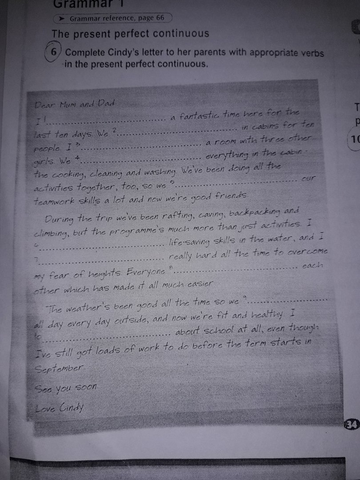 Grammar 1
➤ Grammar reference, page 66
The present perfect continuous
6 Complete Cindy's letter to her parents with appropriate verbs
in the present perfect continuous.
Dear Mum and Dad
I 1.............................. a fantastic time here for the
last ten days. We 2.............................. in cabins for ten
people. I 3.............................. a room with three other
girls. We 4.............................. everything in the cabin –
the cooking, cleaning and washing. We've been doing all the
activities together, too, so we 5.............................. our
teamwork skills a lot and now we're good friends.
During the trip we've been rafting, caving, backpacking and
climbing, but the programme's much more than just activities. I
6.............................. lifesaving skills in the water, and I
7.............................. really hard all the time to overcome
my fear of heights. Everyone 8.............................. each
other which has made it all much easier.
The weather's been good all the time so we 9..............................
all day every day outside, and now we're fit and healthy. I
10.............................. about school at all, even though
I've still got loads of work to do before the term starts in
September.
See you soon
Love Cindy
34
T
p
10